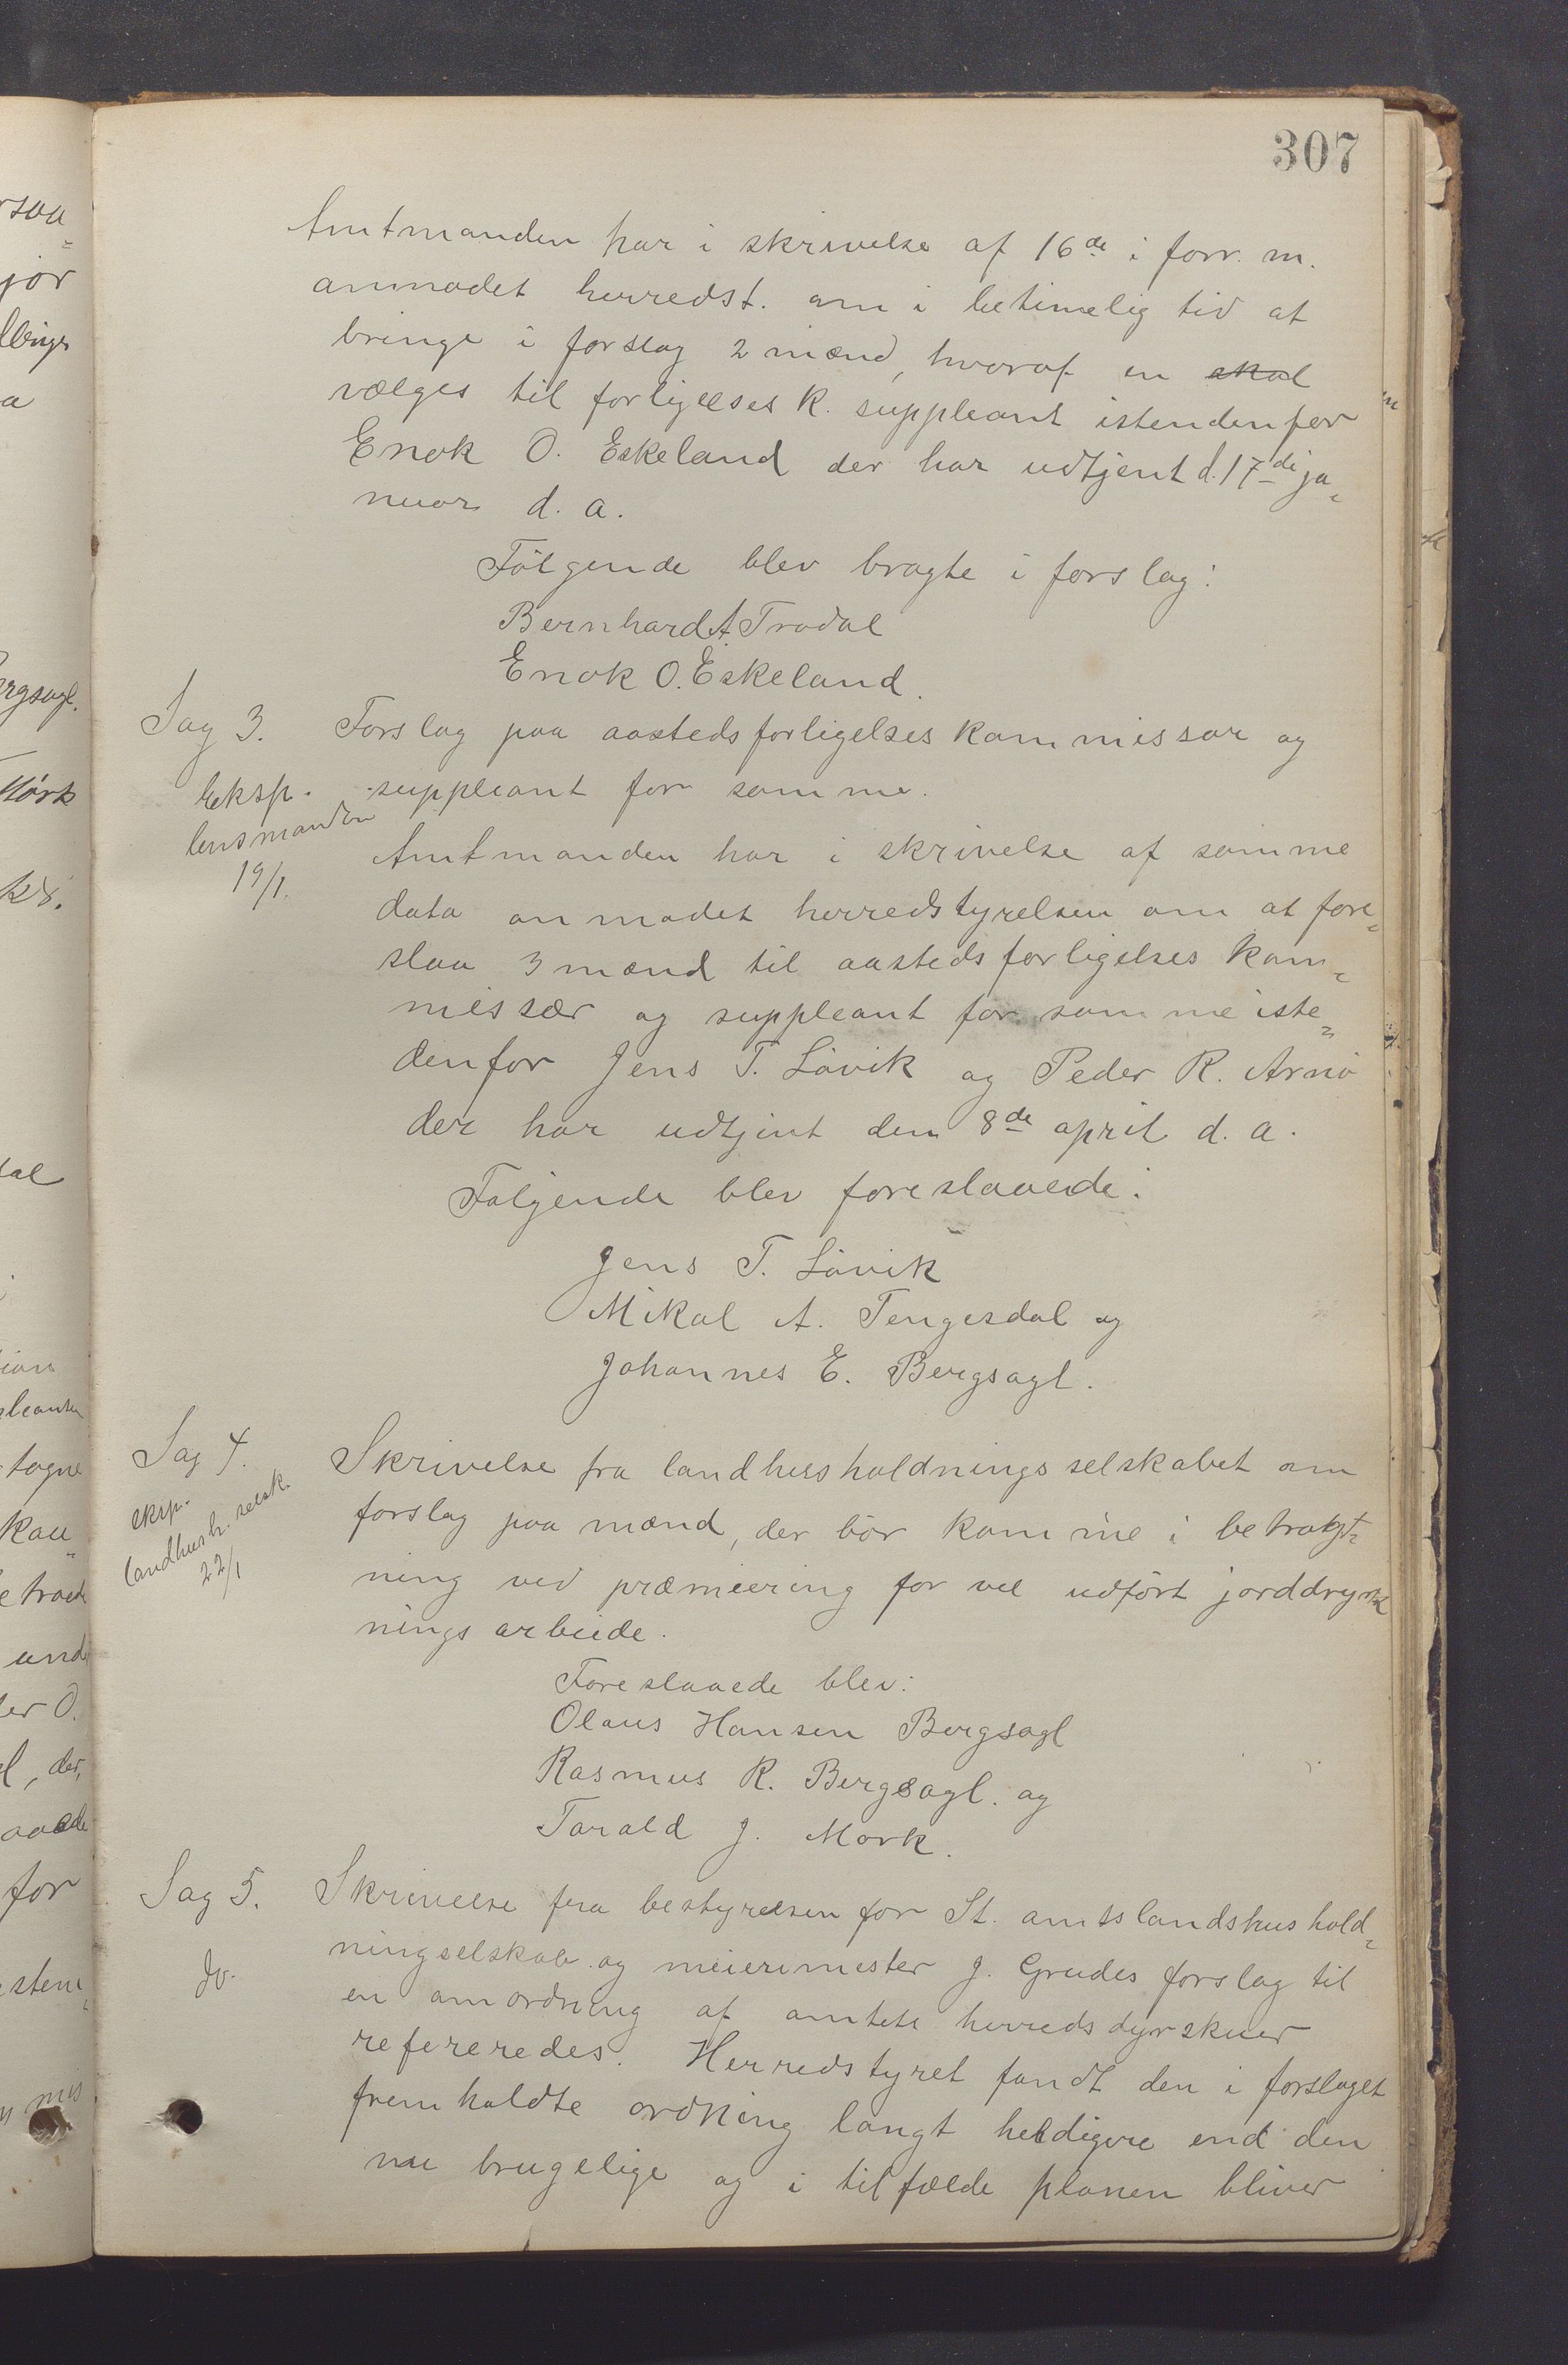 307
Amtmanden har i skrivelse af 16de i forr. m.
anmodet herredst. om i betimelig tid at
bringe i forslag 2 mænd, hvoraf en skal
vælges til forligelses k. suppleant istendenfor
Enok O. Eskeland der har udtjent d. 17de ja-
nuar d. a.
Følgende blev bragte i forslag:
Bernhard A Trodal
Enok O. Eskeland.
Sag 3. Forslag paa aastedsforligelseskommissær og
Eksp. suppleant for samme.
lensmanden
19/1.
Amtmanden har i skrivelse af samme
data anmodet herredstyrelsen om at fore-
slaa 3 mænd til aastedsforligelses kom-
missær og suppleant for samme iste-
denfor Jens T. Løvik og Peder R. Arnø
der har udtjent den 8de april d. a.
Følgende blev foreslaaede:
Jens T. Løvik
Mikal A. Tengesdal og
Johannes E. Bergsagl.
Sag 4. Skrivelse fra landhusholdningsselskabet om
eksp.
landhush. selsk.
22/1
forslag paa mænd, der bør komme i betragt-
ning ved præmiering for vel udført jorddyrk
nings arbeide.
Foreslaaede blev:
Olaus Hansen Bergsagl
Rasmus R. Bergsagl. og
Tarald J. Mørk.
Sag 5. Skrivelse fra bestyrelsen for St. amtslandshushold-
do.
ningselskab og meierimester J. Grudes forslag til
en omordning af amtets herredsdyrskuer
refereredes. Herredstyret fandt den i forslaget
fremholdte ordning langt heldigere end den
nu brugelige og i tilfælde planen bliver